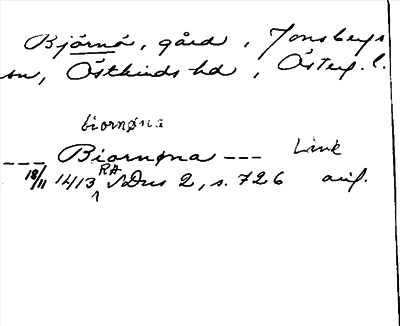 Björnö, gård, Jonsbergs
sn, Östkinds hd, Österg. l.
biornøna
--- Biornøna --- Link
18/11 1413 RA SDns 2, s. 726 avs.